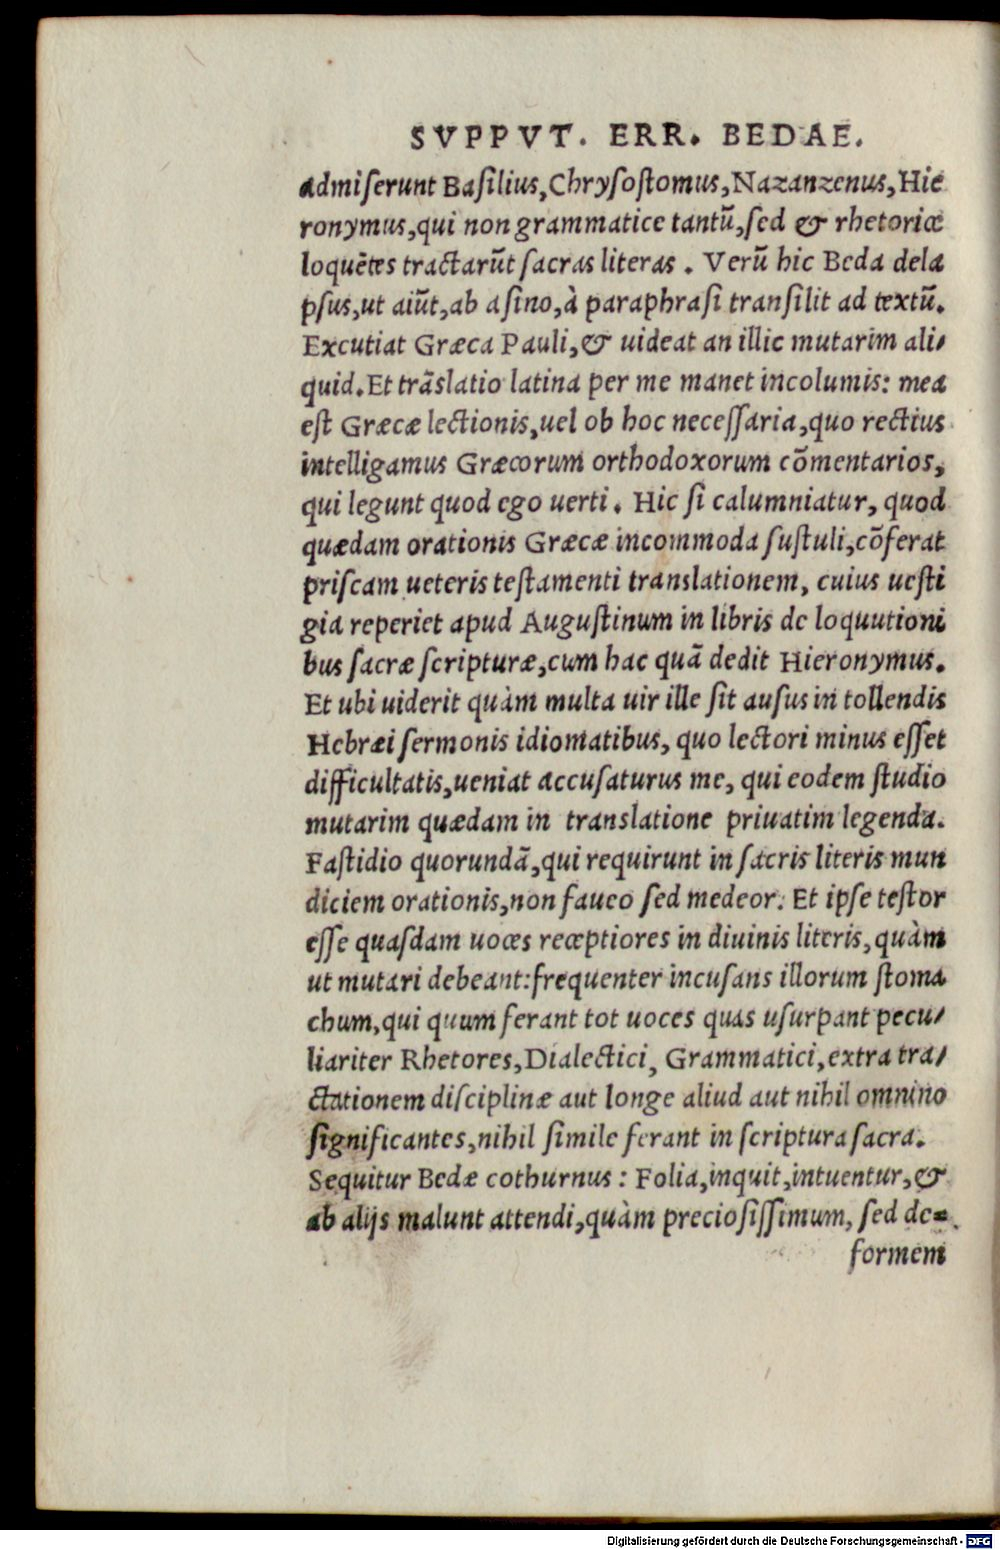 SVPPVT. ERR. BEDAE.
admiserunt Basilius, Chrysostomus, Nazanzenus, Hie
ronymus, qui non grammatice tantũ, sed & rhetorice
loquẽtes tractarũt sacras literas. Verũ hic Beda dela
psus, ut aiũt, ab asino, à paraphrasi transilit ad textũ.
Excutiat Græca Pauli, & uideat an illic mutarim ali-
quid. Et trãslatio latina per me manet incolumis: mea
est Græcæ lectionis, uel ob hoc necessaria, quo rectius
intelligamus Græcorum orthodoxorum cõmentarios,
qui legunt quod ego uerti. Hic si calumniatur, quod
quædam orationis Græcæ incommoda sustuli, cõferat
priscam ueteris testamenti translationem, cuius uesti
gia reperiet apud Augustinum in libris de loquutioni
bus sacræ scripturæ, cum hac quã dedit Hieronymus.
Et ubi uiderit quàm multa uir ille sit ausus in tollendis
Hebræi sermonis idiomatibus, quo lectori minus esset
difficultatis, ueniat accusaturus me, qui eodem studio
mutarim quædam in translatione priuatim legenda.
Fastidio quorundã, qui requirunt in sacris literis mun
diciem orationis, non faueo sed medeor. Et ipse testor
esse quasdam uoces receptiores in diuinis literis, quàm
ut mutari debeant: frequenter incusans illorum stoma
chum, qui quum ferant tot uoces quas usurpant pecu-
liariter Rhetores, Dialectici, Grammatici, extra tra-
ctationem disciplinæ aut longe aliud aut nihil omnino
significantes, nihil simile ferant in scriptura sacra.
Sequitur Bedæ cothurnus: Folia, inquit, intuentur, &
ab alijs malunt attendi, quàm preciosissimum, sed de-
formem
Digitalisierung gefördert durch die Deutsche Forschungsgemeinschaft - DFG